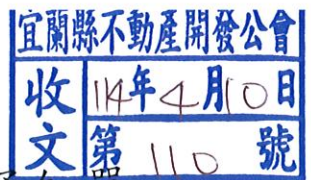 宜蘭縣不動產開發公會
收文
114年4月10日
第110號